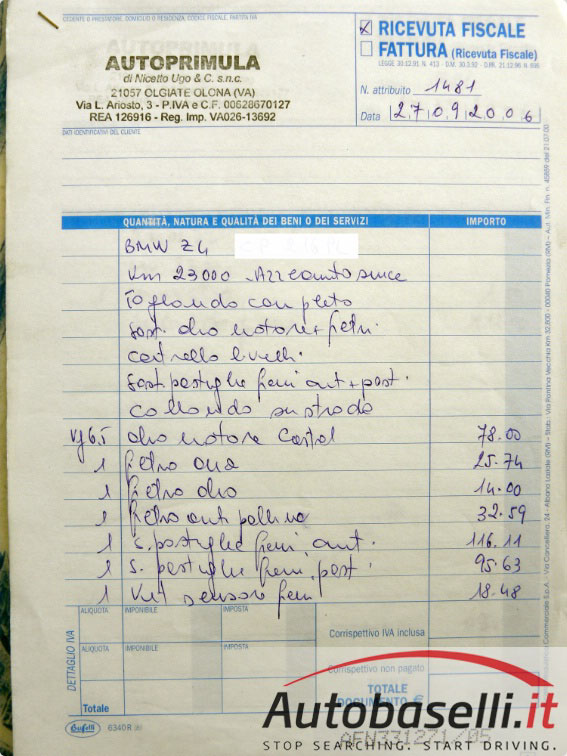 CEDENTE O PRESTATORE, DOMICILIO O RESIDENZA, CODICE FISCALE, PARTITA IVA
AUTOPRIMULA
di Nicetto Ugo & C. s.n.c.
21057 OLGIATE OLONA (VA)
Via L. Ariosto, 3 - P.IVA e C.F. 00628670127
REA 126916 - Reg. Imp. VA026-13692
X RICEVUTA FISCALE
FATTURA (Ricevuta Fiscale)
LEGGE 30.12.91 N. 413 - D.M. 30.3.92 - D.P.R. 21.12.96 N. 696
N. attribuito 1481
Data 27 09 2006
DATI IDENTIFICATIVI DEL CLIENTE
QUANTITÀ, NATURA E QUALITÀ DEI BENI O DEI SERVIZI IMPORTO
BMW Z4
Km 23000 Azzeramento
Tagliando completo
Sost. olio motore + filtri
Controllo livelli
Sost pastiglie freni ant + post.
Collaudo su strada
Kg 6.5 olio motore Castrol 78.00
1 filtro aria 25.74
1 filtro olio 14.00
1 filtro anti polline 32.59
1 S. pastiglie freni ant. 116.11
1 S. pastiglie freni post. 95.63
1 Kit sensore freni 18.48
DETTAGLIO IVA
ALIQUOTA IMPONIBILE IMPOSTA
Corrispettivo IVA inclusa
ALIQUOTA IMPONIBILE IMPOSTA
Corrispettivo non pagato
Totale
TOTALE DOCUMENTO €
Buffetti 6340R
Autobaselli.it
AFN331271/05
STOP SEARCHING. START DRIVING.